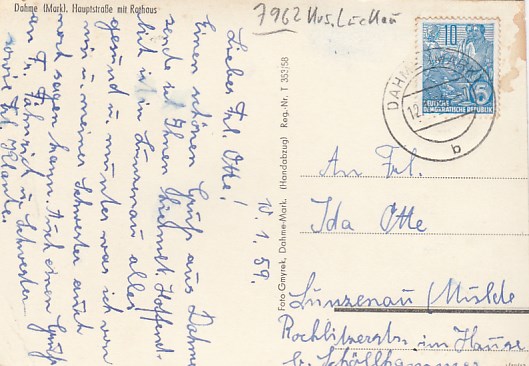 Dahme (Mark), Hauptstraße mit Rathaus
7962 Krs. Luckau
10
DEUTSCHE
DEMOKRATISCHE REPUBLIK
DAHME (MARK)
12.
b
10. 1. 59.
Liebes Frl. Otte!
Einen schönen Gruß aus Dahme
sende ich Ihnen Hoffent-
lich ist in Lunzenau alles
gesund u. munter was ich von
mir u. meiner Schwester auch
sagen kann. Auch einen Gruß
an F. u. Schwester
sowie Frl. Klante.
Foto Gmyrek, Dahme-Mark. (Handabzug) Reg.-Nr. T 353/58
An Frl.
Ida Otte
Lunzenau (Mulde
Rochlitzerstr. im Hause
b. Schöllhammer